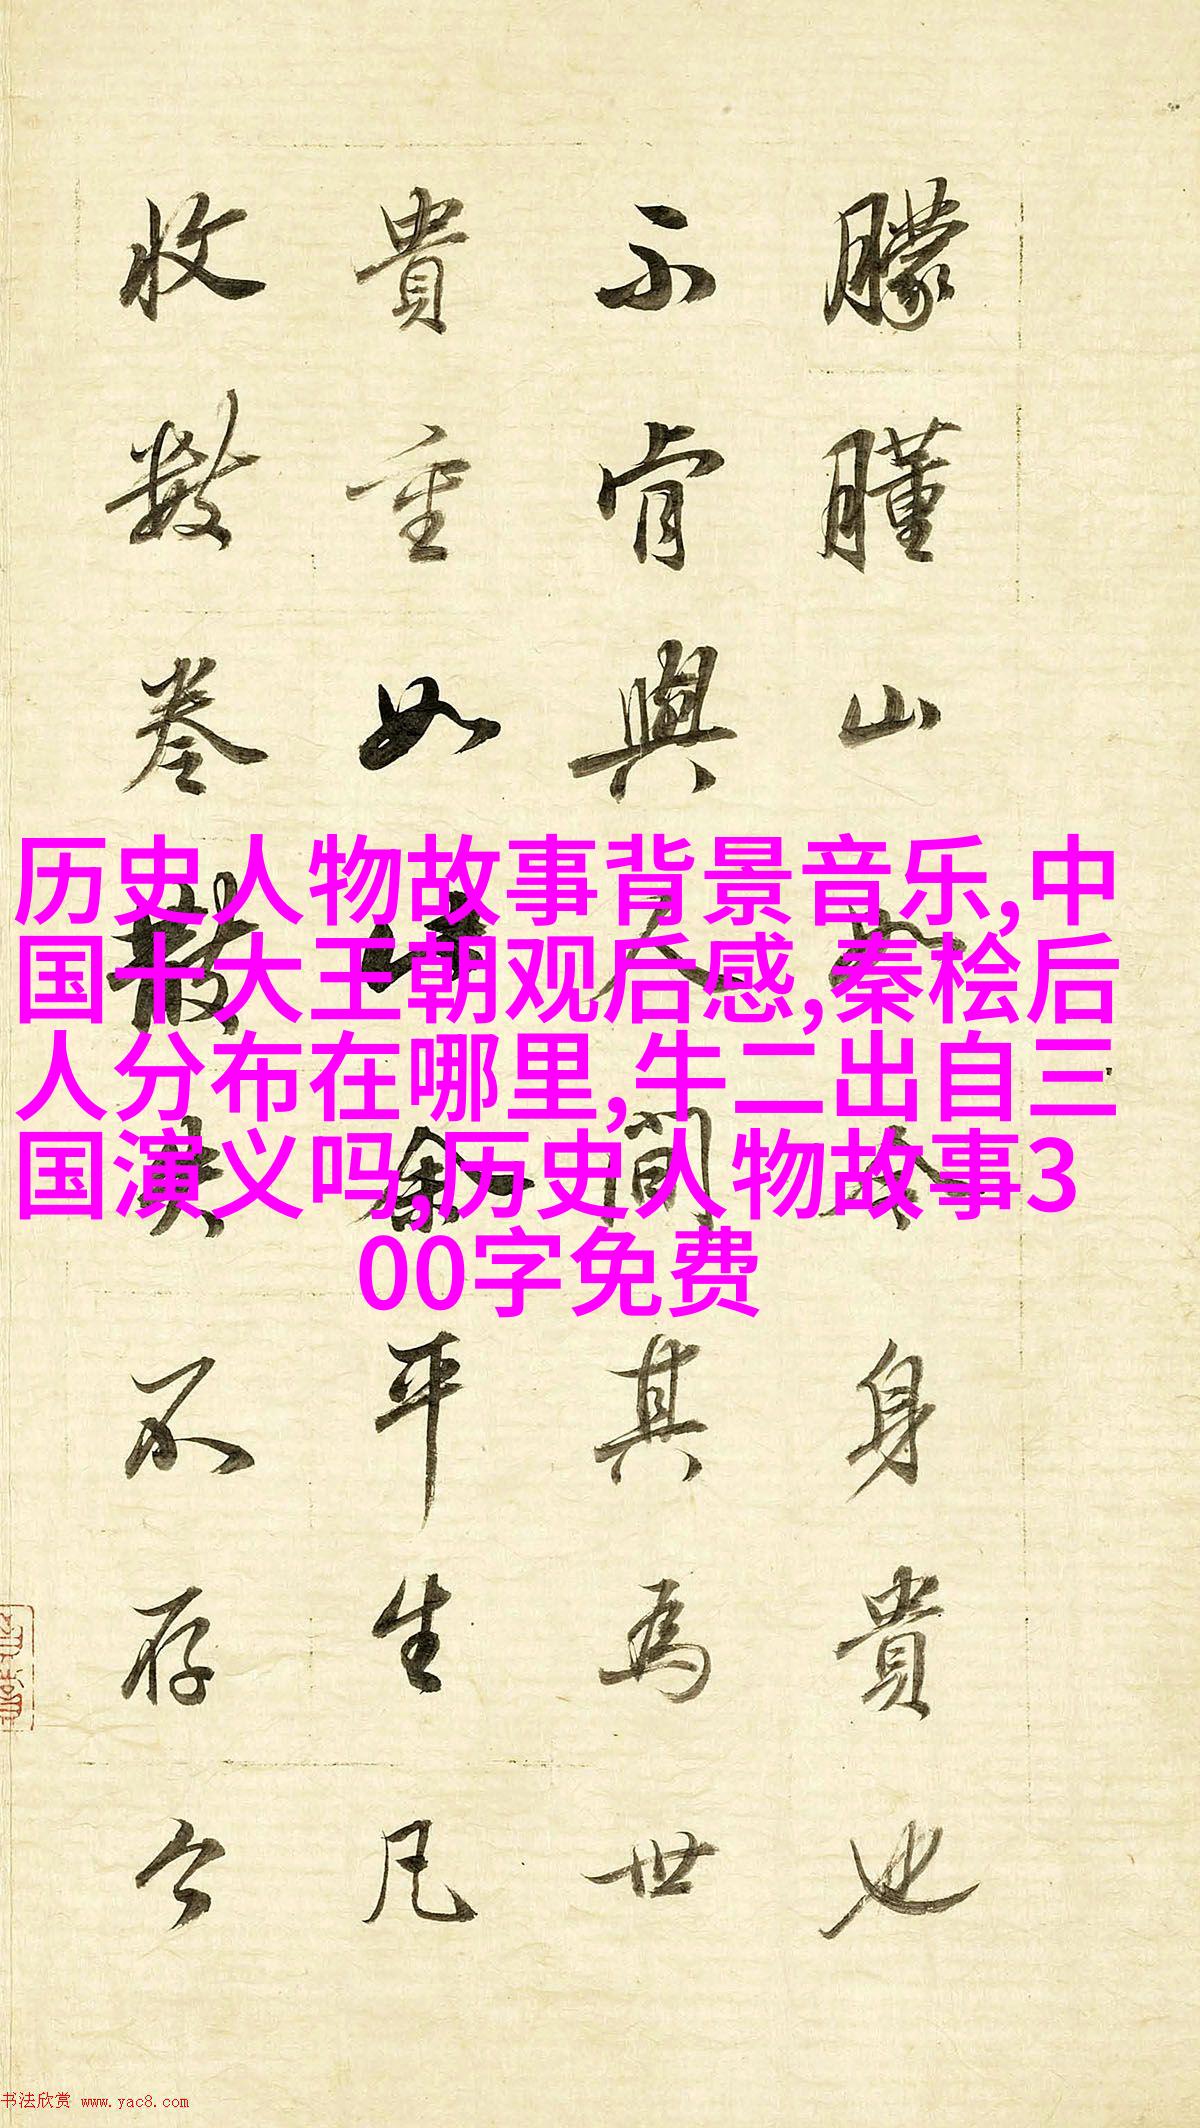 朦朣山身貴也
不肯與人間其為世
貴重如余平生凡
收數卷散失不存今
历史人物故事背景音乐,中
国十大王朝观后感,秦桧后
人分布在哪里,牛二出自三
国演义吗,历史人物故事3
00字免费
书法欣赏 www.yac8.com